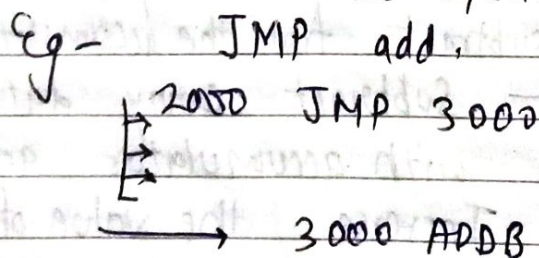 Eg- JMP add.
2000 JMP 3000
3000 ADDB